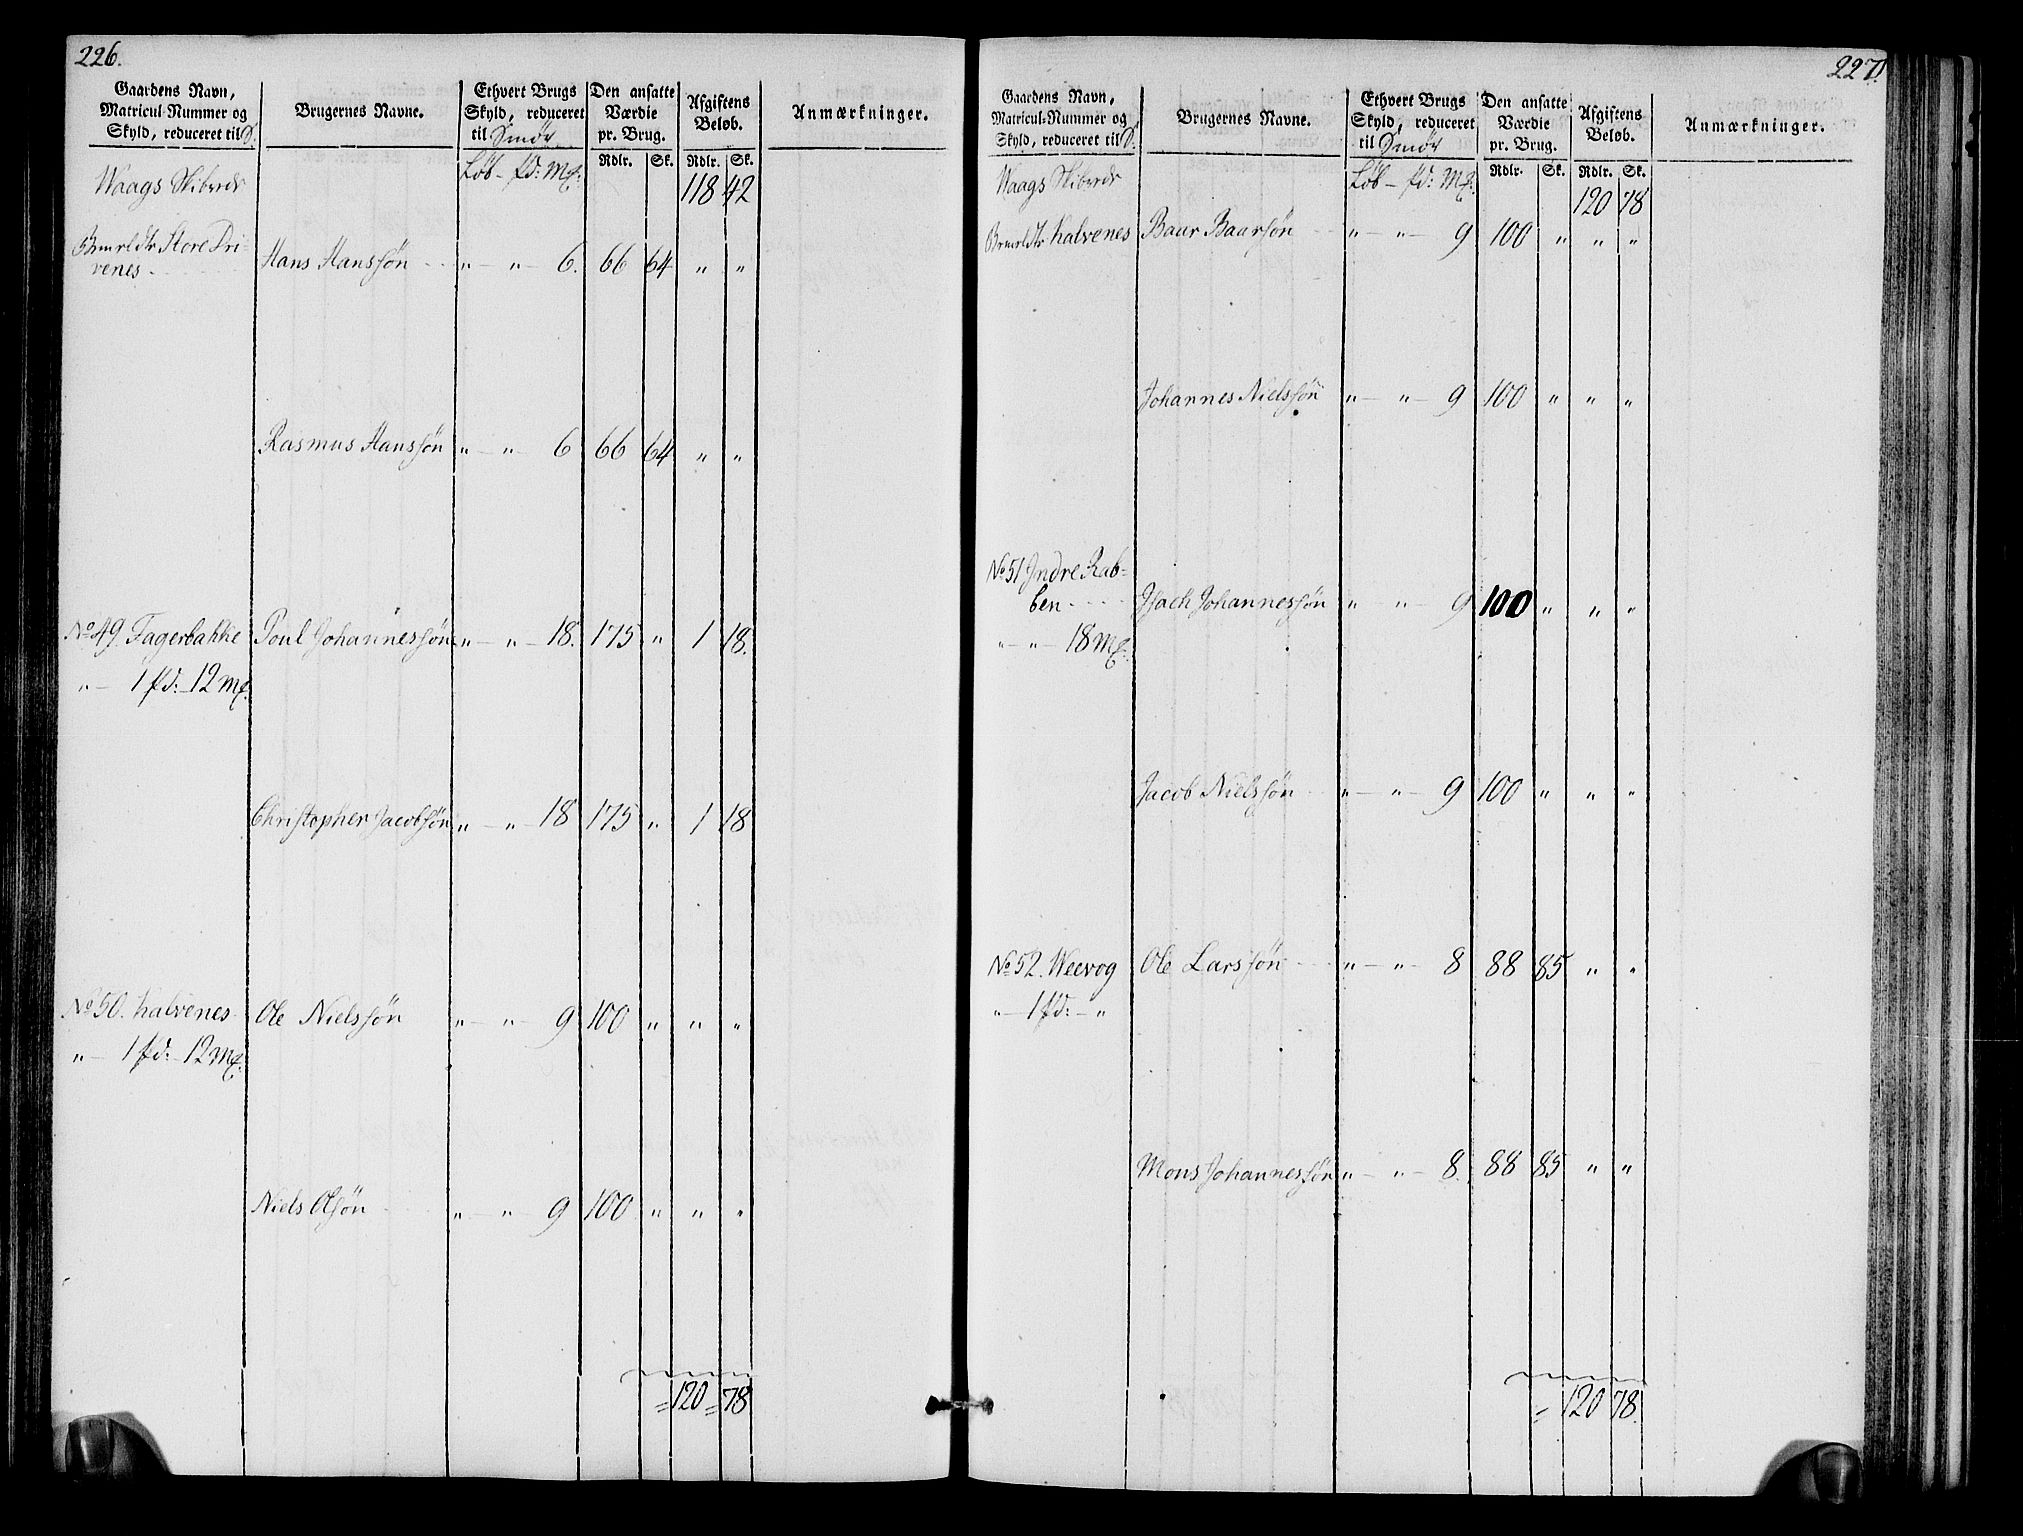 226.
Gaardens Navn, Matricul-Nummer og Skyld, reduceret til D. | Brugernes Navne. | Ethvert Brugs Skyld, reduceret til Smör | Den ansatte Værdie pr. Brug. | Afgiftens Beløb. | Anmærkninger.
Løb - pd: mk: | Rdlr. | Sk. | Rdlr. | Sk.
Waags Skibrede 118 42
Store Dri-
venes Hans Hanssøn " - " - 6. 66 64 " "
Rasmus Hanssøn " - " - 6 66 64 " "
No 49. Fagerbakke Poul Johannessøn " - " - 18. 175 " 1 18.
" - 1 pd: - 12 mk:
Christopher Jacobsøn " - " - 18 175 " 1 18
No 50. Kalvenes Ole Nielssøn " - " - 9 100 " " "
" - 1 pd: - 12 mk:
Niels Olsøn " - " - 9 100 " " "
= 120 = 78
227.
Gaardens Navn, Matricul-Nummer og Skyld, reduceret til D. | Brugernes Navne. | Ethvert Brugs Skyld, reduceret til Smör | Den ansatte Værdie pr. Brug. | Afgiftens Beløb. | Anmærkninger.
Løb - pd: mk: | Rdlr. | Sk. | Rdlr. | Sk.
Waags Skibrede 120 78
Kalvenes Baar Baarsøn " - " - 9 100 " " "
Johannes Nielssøn " - " - 9 100 " " "
No 51 Indre Rab-
ben Isach Johannessøn " - " - 9 100 " " "
" - " - 18 mk:
Jacob Nielssøn " - " - 9 100 " " "
No 52. Weevog Ole Larssøn " - " - 8 88 85 " "
" - 1 pd: - "
Mons Johannessøn " - " - 8. 88 85 " "
= 120 78.